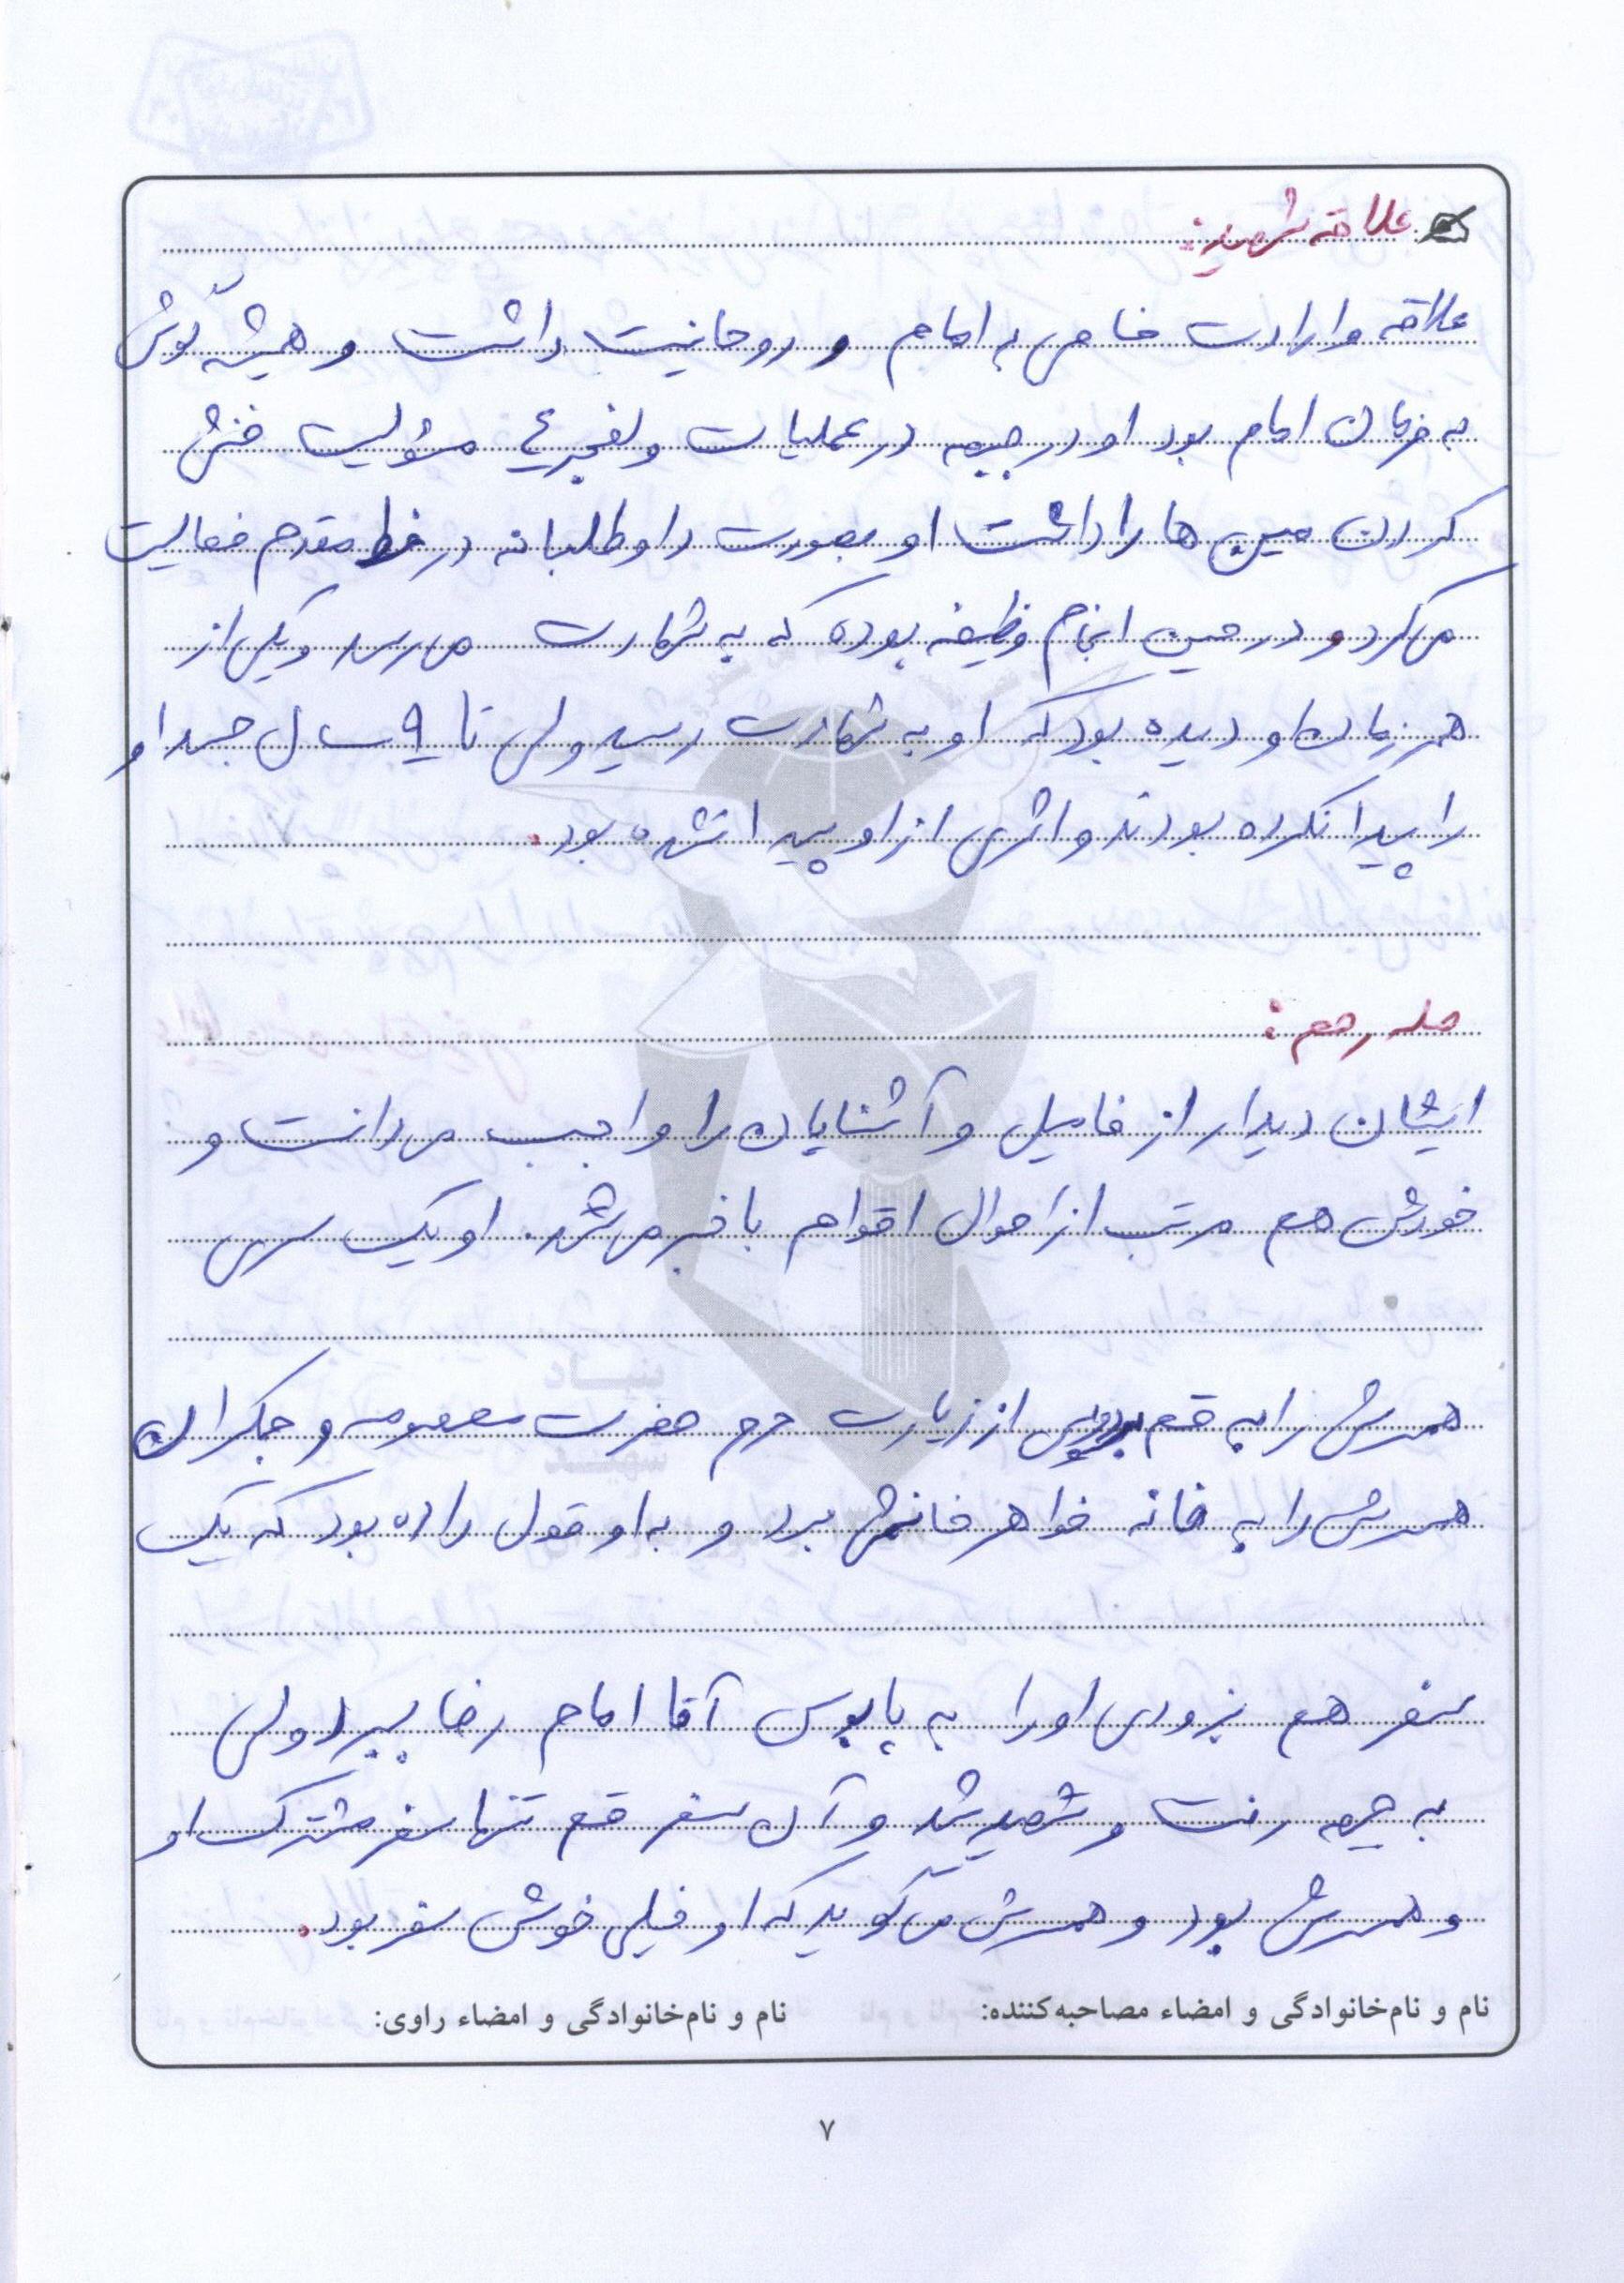 علاقه شهید:
علاقه و ارادت خاصی به امام و روحانیت داشت و همیشه گوش
به فرمان امام بود او در جبهه در عملیات والفجر ۴ مسئولیت خنثی
کردن مین ها را داشت او بصورت داوطلبانه در خط مقدم فعالیت
می کرد و در حین انجام وظیفه بوده که به شهادت می رسد و یکی از
همرزمان او دیده بود که او به شهادت رسید ولی تا ۹ سال جسد او
را پیدا نکرده بودند و اثری از او پیدا نشده بود.
صله رحم:
ایشان دیدار از فامیل و آشنایان را واجب می دانست و
خودش هم مرتب از احوال اقوام با خبر می شد. او یک سری
همسرش را به قم برد و پس از زیارت حرم حضرت معصومه و جمکران
همسرش را به خانه خواهر خانمش برد و به او قول داده بود که یک
سفر هم بزودی او را به پابوس آقا امام رضا ببرد ولی
به جبهه رفت و شهید شد و آن سفر قم تنها سفر مشترک او
و همسرش بود و همسرش می گوید که او خیلی خوش سفر بود.
نام و نام‌خانوادگی و امضاء مصاحبه‌کننده: نام و نام‌خانوادگی و امضاء راوی:
۷